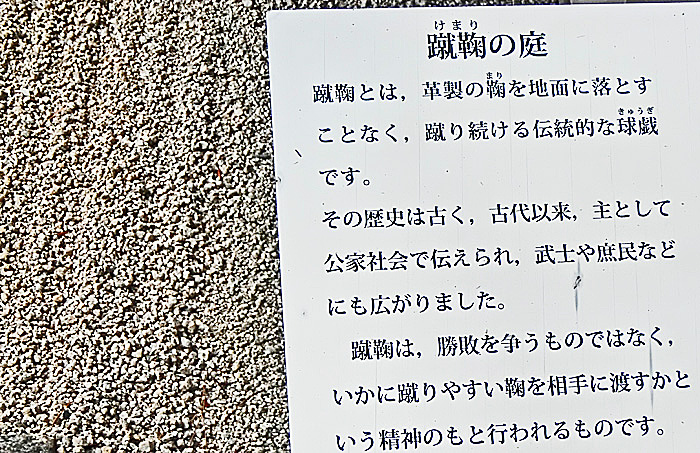 けまり
蹴鞠の庭
まり
蹴鞠とは，革製の鞠を地面に落とす
きゅうぎ
ことなく，蹴り続ける伝統的な球戯
です。
その歴史は古く，古代以来，主として
公家社会で伝えられ，武士や庶民など
にも広がりました。
蹴鞠は，勝敗を争うものではなく，
いかに蹴りやすい鞠を相手に渡すかと
いう精神のもと行われるものです。